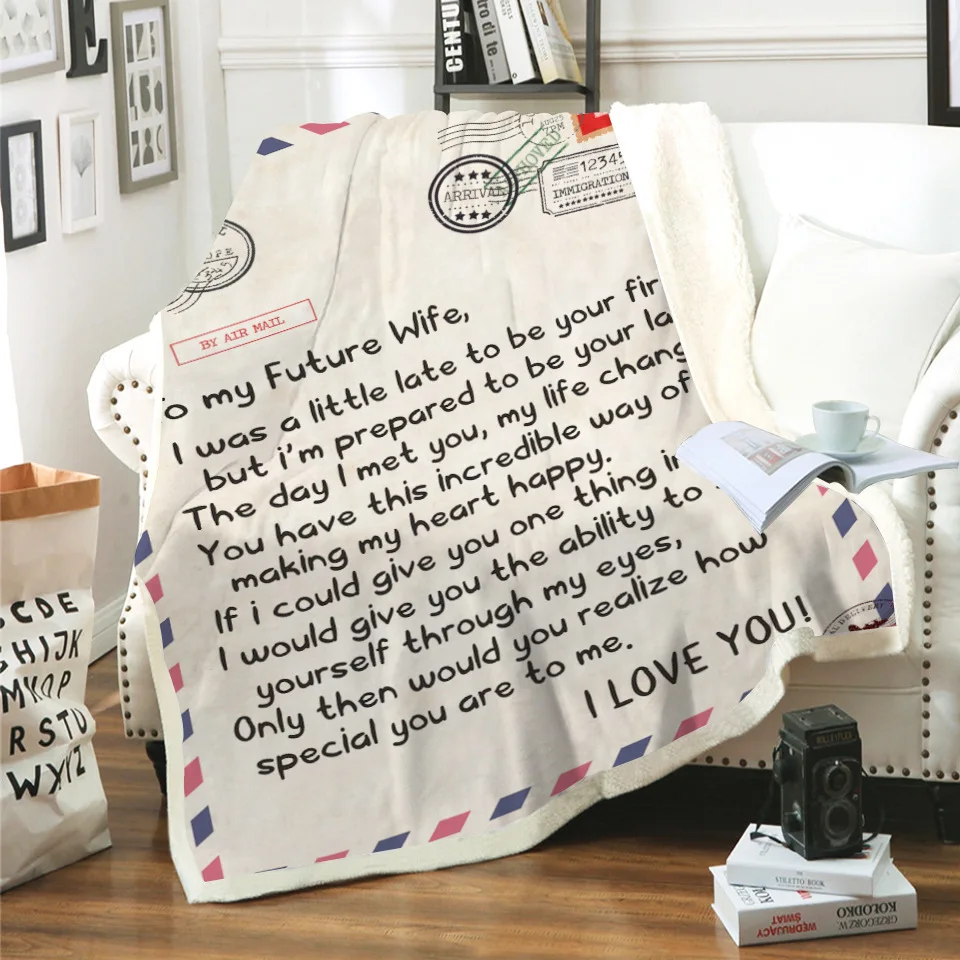 E
CENTU
ro di te
AUG25
7PM
ARRIVAL
12345
IMMIGRATION
BY AIR MAIL
o my Future Wife,
I was a little late to be your fir
but i'm prepared to be your la
The day I met you, my life chang
You have this incredible way of
making my heart happy.
If i could give you one thing in
I would give you the ability to
yourself through my eyes,
Only then would you realize how
special you are to me.
I LOVE YOU!
CDE
GHIJK
MNOP
RSTU
WXYZ
STILETTO BOOK
GRZEGORZ W.
KOŁODKO
WĘDRUJĄCY
ŚWIAT